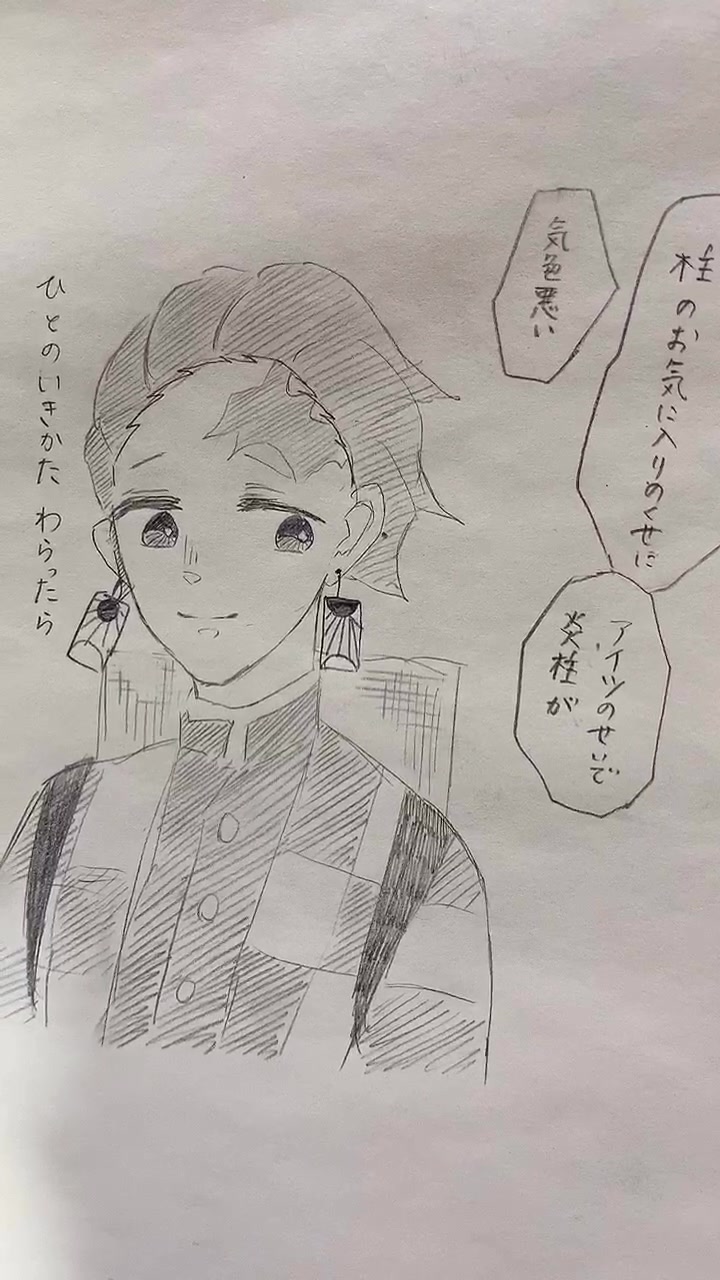 柱のお気に入りのくせに
気色悪い
アイツのせいで
炎柱が
ひとのいきかた わらったら